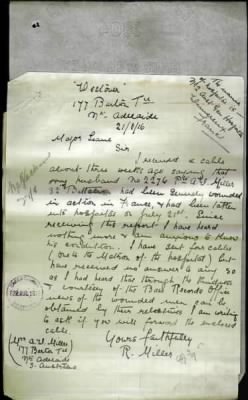 "Westover"
177 Barton Tce
Nth Adelaide
21/8/16
Major Leane
Sir
I received a cable
about three weeks ago saying that
my husband No 2276 Pte A.V. Miller
32nd Battalion had been severely wounded
in action in France, & had been taken
into hospital on July 21st. Since
receiving this report I have heard
nothing more & am anxious to know
his condition. I have sent two cables
(one to the Matron of the hospital) but
have received no answer to any so
as I had heard that through the kindness
& courtesy of the Base Records Office
news of the wounded men can be
obtained by their relatives I am writing
to ask if you will forward the enclosed
cable.
Yours faithfully
R. Miller
(Mrs A.V. Miller
177 Barton Tce
Nth Adelaide
S. Australia